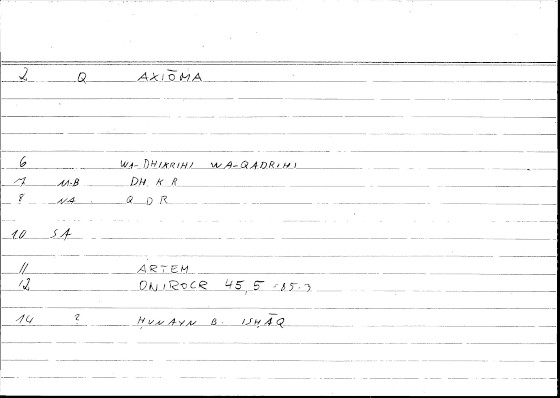 2 Q AXIŌMA
6 WA-DHIKRIHI WA-QADRIHI
7 M-B DH K R
8 NA Q D R
10 SA
11 ARTEM
12 ONIROCR 45,5
14 ? ḤUNAYN B. ISḤĀQ